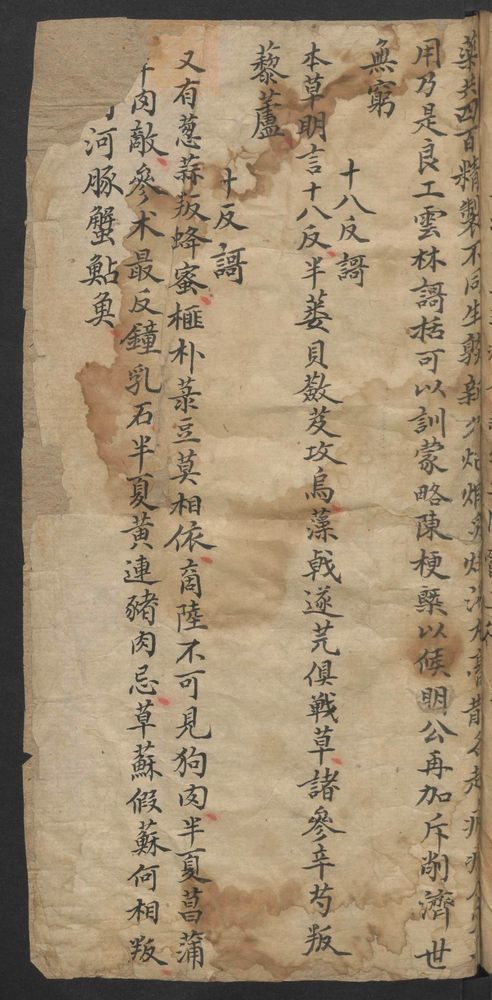 藥共四百精製不同生熟新久炮煅炙
用乃是良工雲林謌括可以訓蒙略陳梗槩以候明公再加斥削濟世
無窮
十八反謌
本草明言十八反半蒌貝蘞芨攻烏藻戟遂芫俱戰草諸參辛芍叛
藜蘆
十反謌
又有葱蒜叛蜂蜜榧朴菉豆莫相依啇陸不可見狗肉半夏菖蒲
羊肉敵參术最反鐘乳石半夏黃連豬肉忌草蘇假蘇何相叛
河豚蟹鮎奐